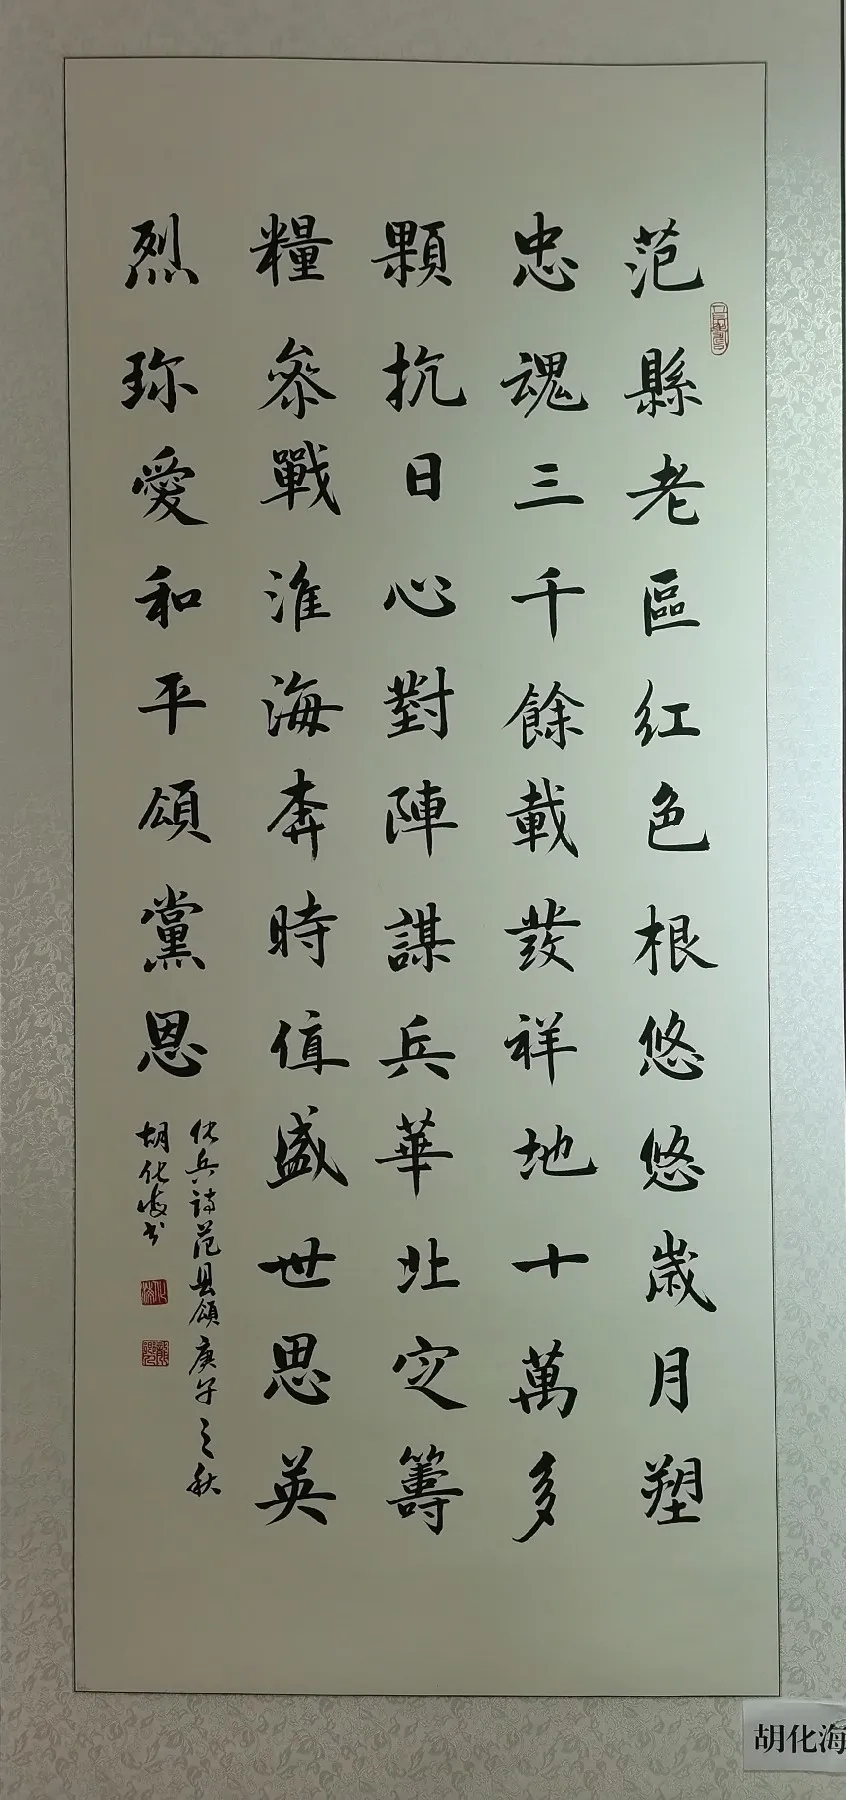 范縣老區红色根悠悠歲月塑
忠魂三千餘載發祥地十萬多
顆抗日心對陣謀兵華北定籌
糧參戰淮海奔時值盛世思英
烈珎愛和平頌黨恩
化兵诗范县頌庚子之秋
胡化海书
胡化海